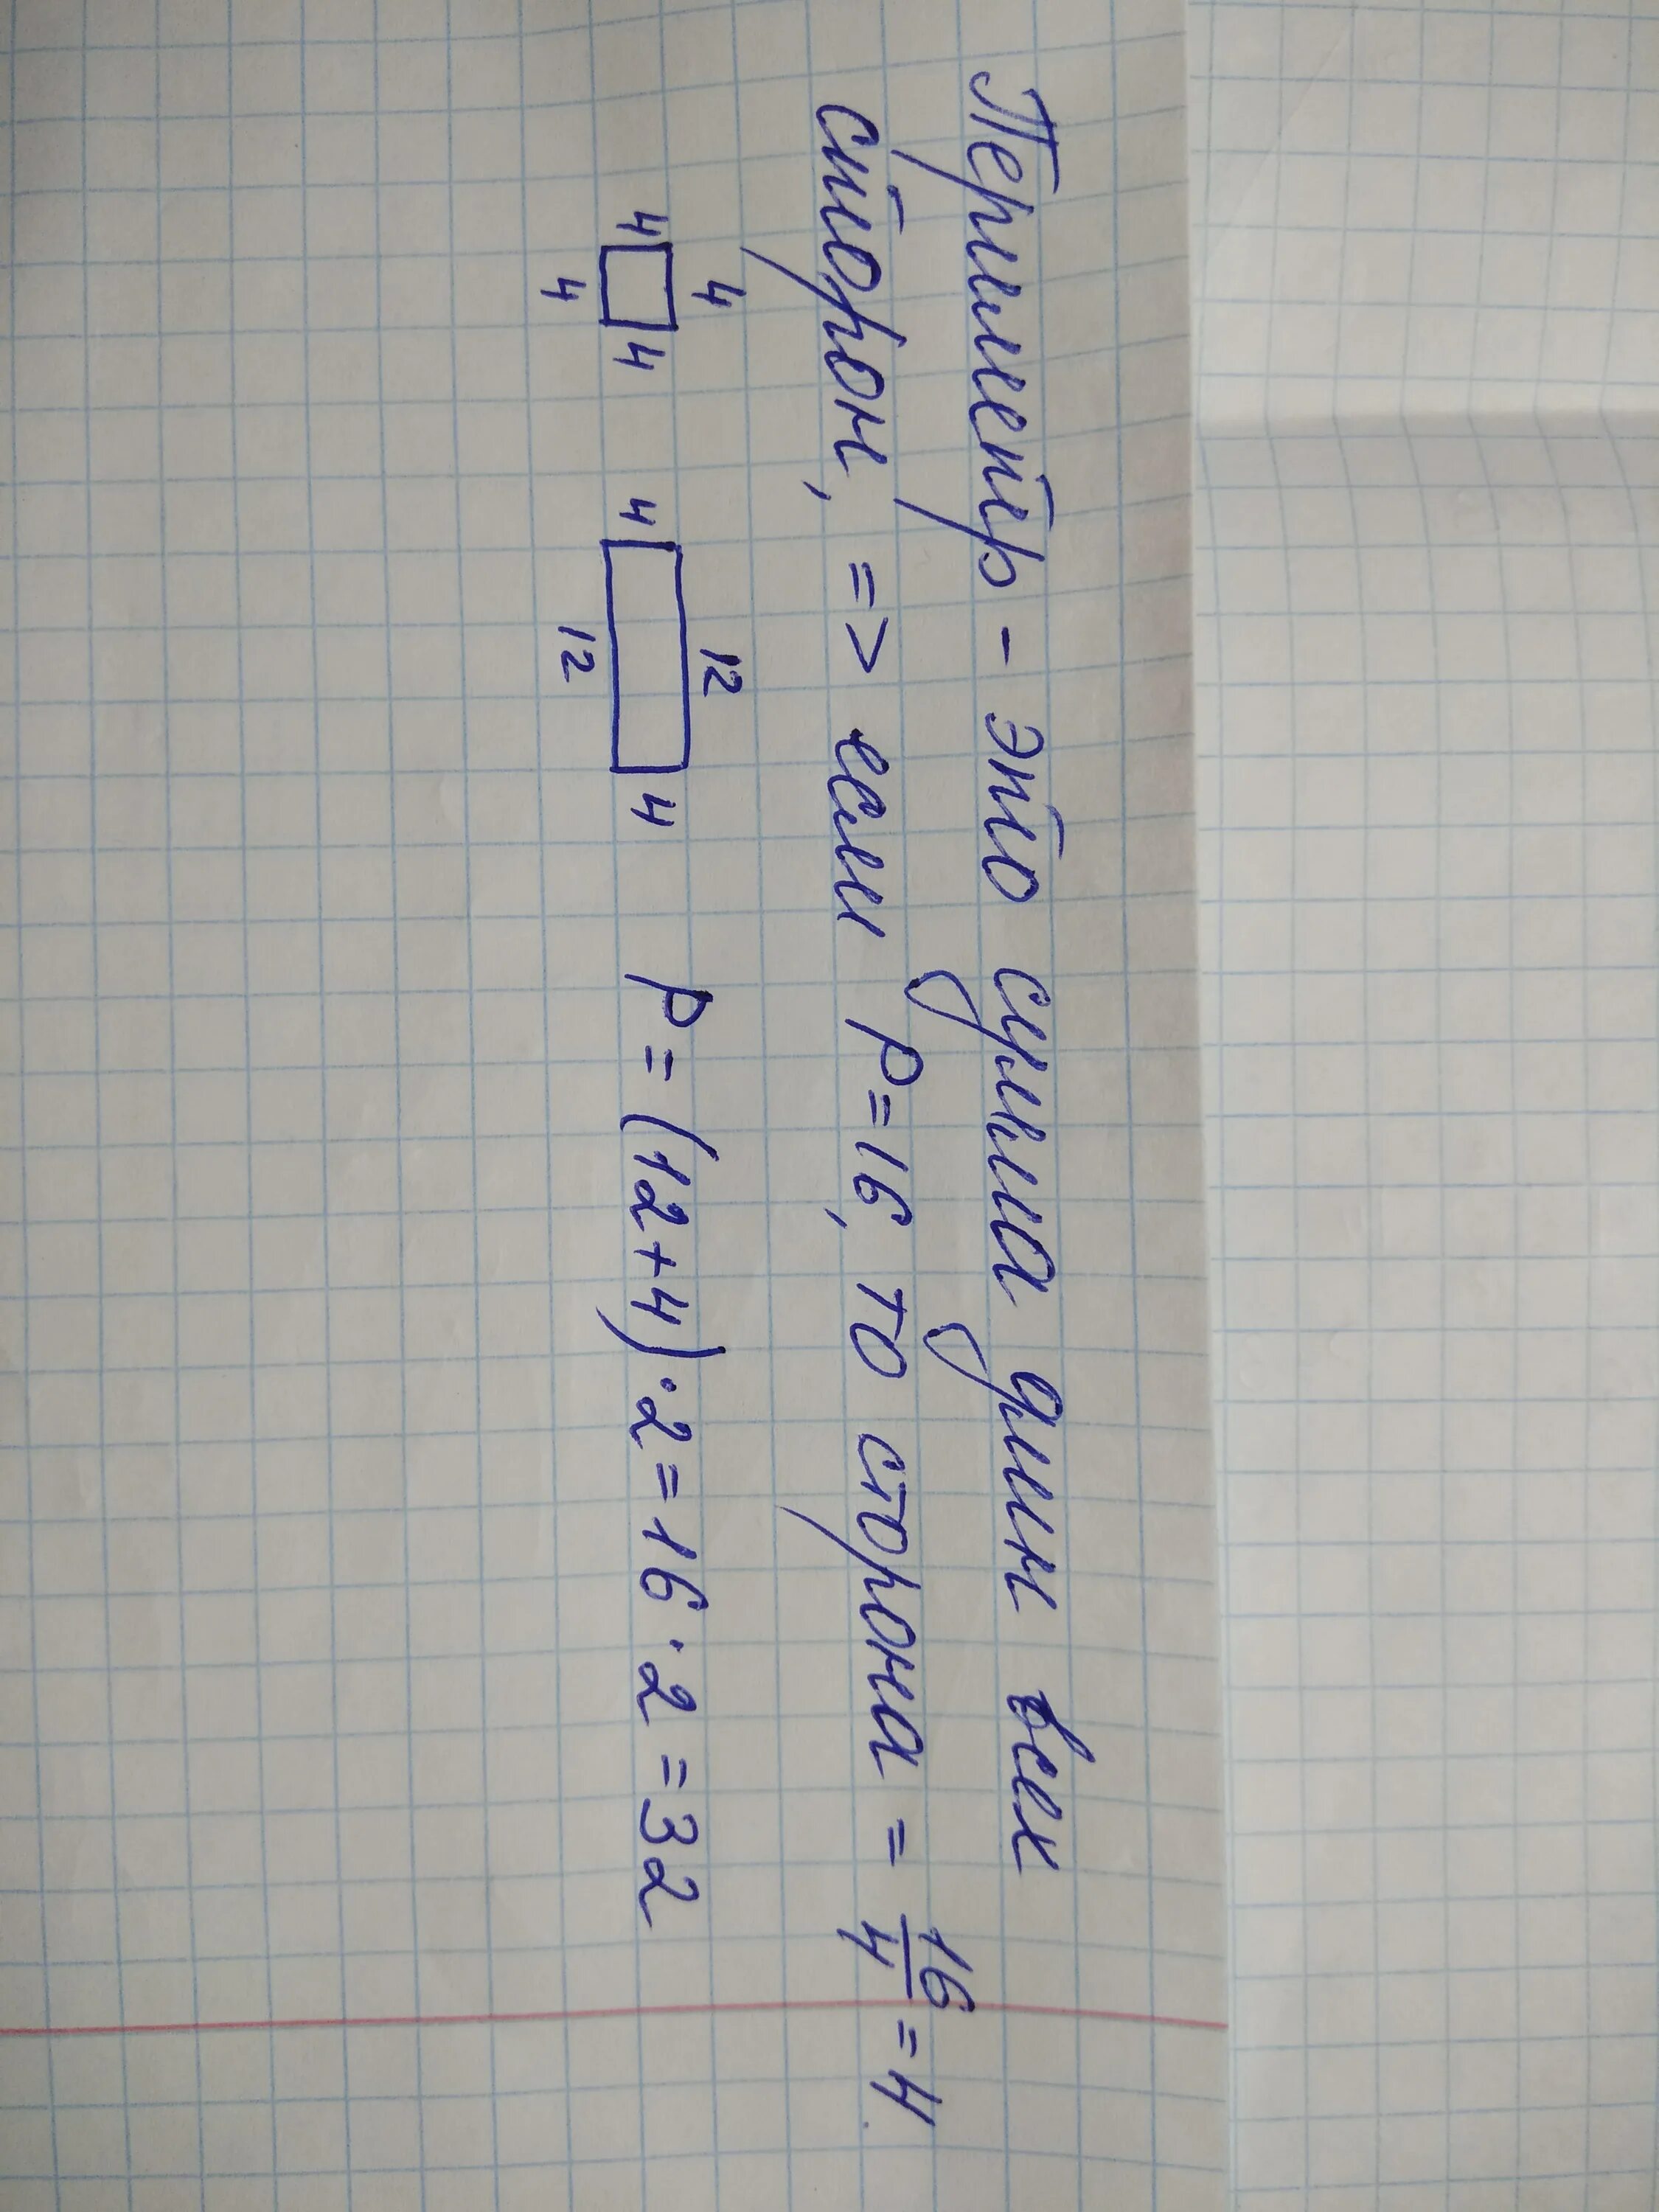 Периметр - это сумма длин всех
сторон, => если P=16, то сторона = 16/4 = 4.
4 12
4 4 4 12 4 P = (12+4)·2 = 16·2 = 32
4 12